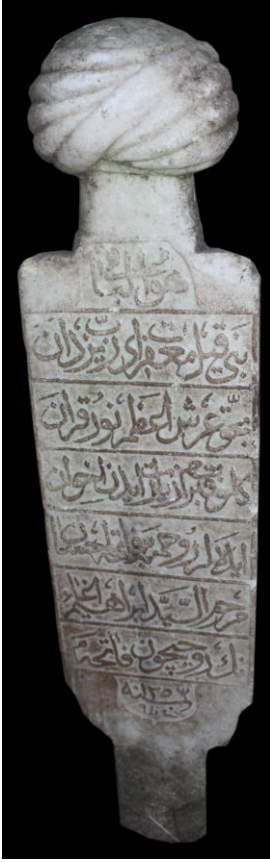 هو الباقي
بني قيل مغفرت اي رب يزدان
بحق عرش اعظم نور قرآن
كلوب قبرم زيارت ايدن اخوان
ايده لر روحمه بر فاتحه احسان
مرحوم السيد ابراهيم
نك روحيچون فاتحه
سنه